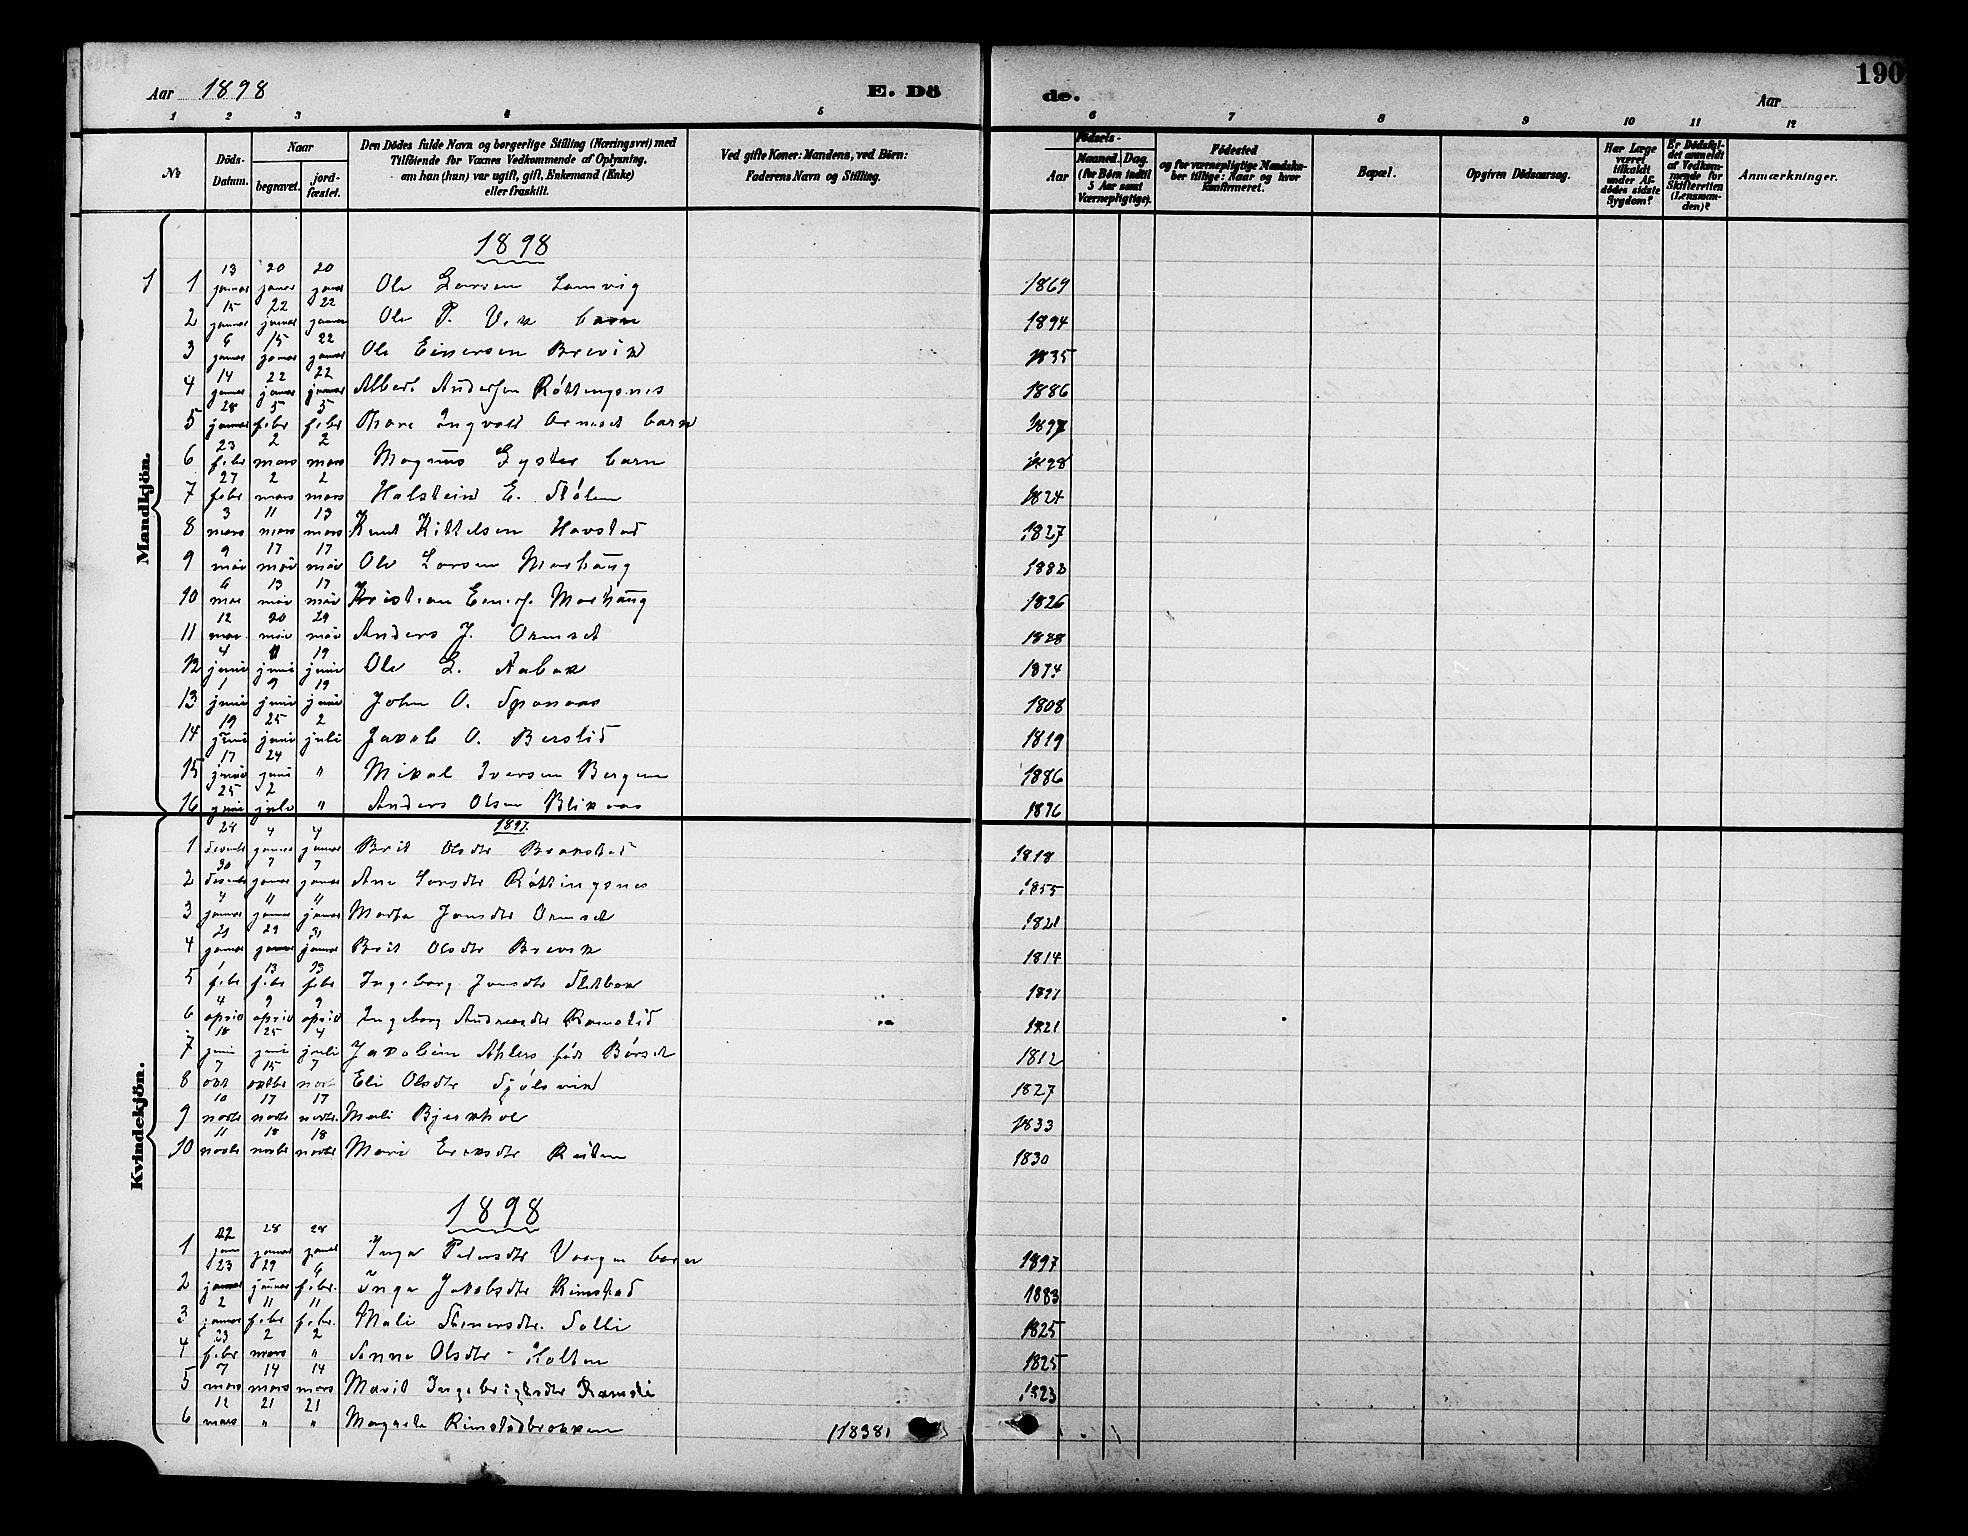 190
Aar 1898 E. Dö de. Aar
1 2 3 4 5 6 7 8 9 10 11 12
№ Döds-Datum. Naar begravet. jordfæstet. Den Dödes fulde Navn og borgerlige Stilling (Næringsvei) med Tilföiende for Voxnes Vedkommende af Oplysning, om han (hun) var ugift, gift, Enkemand (Enke) eller fraskilt. Ved gifte Koner: Mandens, ved Börn: Faderens Navn og Stilling. Födsels- Aar Maaned. Dag. (for Börn indtil 5 Aar samt Værnepligtige). Födested og for værnepligtige Mandskaber tillige: Naar og hvor konfirmeret. Bopæl. Opgiven Dödsaarsag. Har Læge været tilkaldt under Afdödes sidste Sygdom? Er Dödsfaldet anmeldt af Vedkommende for Skifteretten (Lensmanden)? Anmærkninger.
Mandkjön.
1898
1 1 13 januar 20 januar 20 januar Ole Larsen 1869
2 15 januar 22 januar 22 januar Ole P. Vik barn 1894
3 6 januar 15 januar 22 januar Ole Einersen Brevik 1835
4 14 januar 22 januar 22 januar Albert Andersen Röttingsnes 1886
5 28 januar 5 febr 5 febr Ingvald Ormset barn 1897
6 23 febr 2 mars 2 mars Magnus Gyster barn 1898
7 27 febr 2 mars 2 mars Halstein E. Stölen 1824
8 3 mars 11 mars 13 mars Knut Kittelsen Havstad 1827
9 9 mai 17 mai 17 mai Ole Larsen Morhaug
10 6 mai 13 mai 17 mai Kristian Morhaug 1826
11 12 mai 20 mai 29 mai Anders J. Ormset
12 4 juni 11 juni 19 juni Ole L. Aabak 1874
13 1 juni 9 juni 19 juni John O. 1808
14 19 juni 25 juni 2 juli Jakob O. Berslid 1819
15 17 juni 24 juni " Mikal Iversen Bergem 1886
16 25 juni 2 juli " Anders Olsen Blikaas 1876
Kvindekjön.
1897.
1 28 desembr 4 januar 4 januar Brit Olsdtr Brakstad 1818
2 30 desembr 7 januar 7 januar Ane Larsdtr Röttingsnes 1855
3 4 januar 11 januar 11 januar Marta Jonsdtr Ormset 1821
4 21 januar 29 januar 31 januar Brit Olsdtr Brevik 1814
5 1 febr 13 febr 13 febr Ingeborg Jonsdtr Sletbak
6 4 april 9 april 9 april Ingeborg Andreasdtr Ramslid 1821
7 18 juni 25 juni 4 juli Jakobine Ahlers født Börset 1812
8 7 okt 15 oktbr 7 Eli Olsdtr Sjölsvik 1827
9 10 novbr 17 novbr 17 novbr. Mali Bjerkhol 1833
10 11 novbr 18 novbr 18 novbr Mari Eriksdtr 1830
1898
1 22 janu 28 januar 28 januar Inga Pedersdtr Vaagen barn 1897
2 23 januar 29 januar 6 febr. Inga Jakobsdtr Rimstad 1883
3 2 januar 11 febr 11 febr. Mali Steinersdtr. Solli 1825
4 23 febr 2 mars 2 " Anne Olsdtr - Holten 1825
5 7 mars 14 mars 14 mars Marit Ingebrigtsdtr Ramsli 1823
6 12 mars 21 " 21 " Magnete Rimstadbrakken 1838